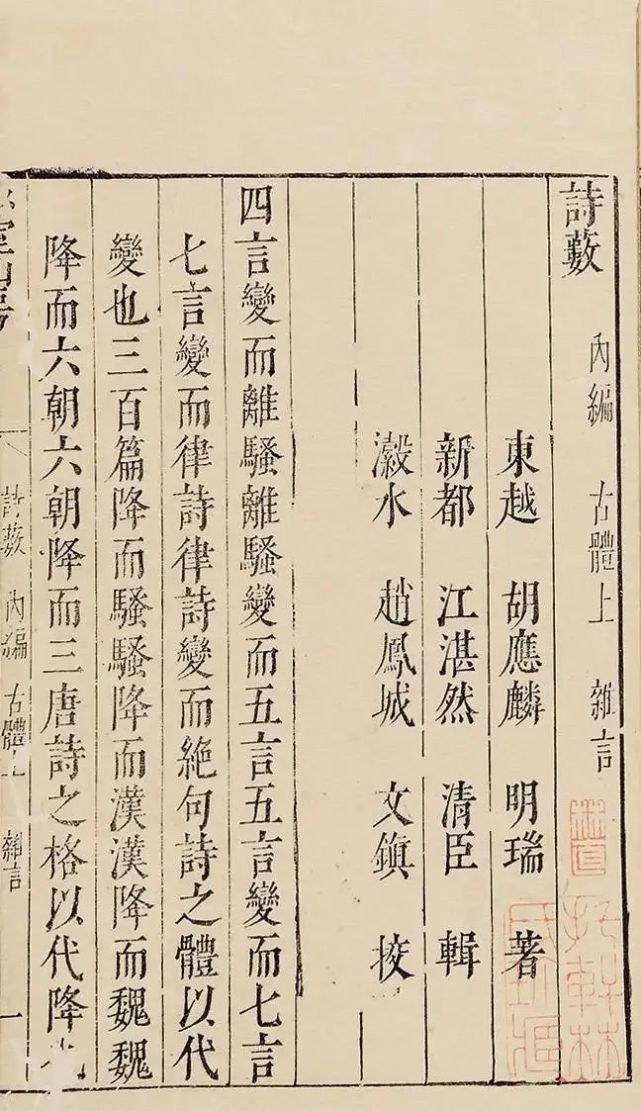 詩藪 內編 古體上 雜言
東越 胡應麟 明瑞 著
新都 江湛然 清臣 輯
瀫水 趙鳳城 文鎮 挍
四言變而離騷離騷變而五言五言變而七言
七言變而律詩律詩變而絕句詩之體以代
變也三百篇降而騷騷降而漢漢降而魏魏
降而六朝六朝降而三唐詩之格以代降也
詩藪 內編 古體上 雜言 一